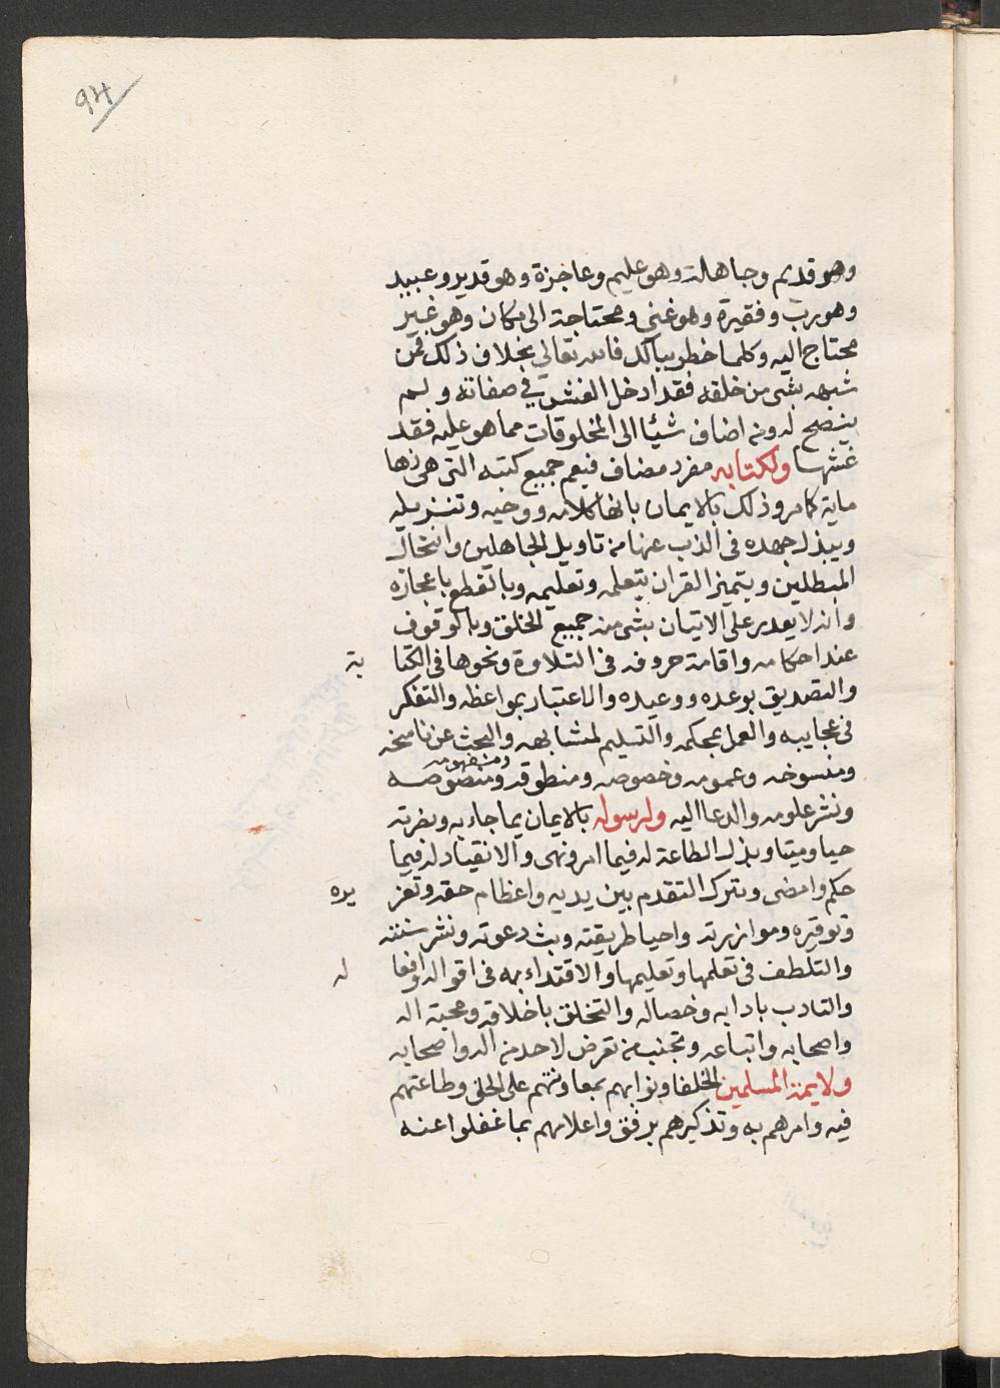 94
وهو قديم وجاهلة وهو عليم وعاجزة وهو قدير وعبيد
وهو رب وفقيرة وهو غني ومحتاجة الى مكان وهو غير
محتاج اليه وكلما خطر ببالك فالله تعالى بخلاف ذلك فمن
شبهه بشى من خلقه فقد ادخل الغش في صفاته ولم
ينصح له ومن اضاف شيئا الى المخلوقات مما هو عليه فقد
غشها ولكتابه مفرد مضاف فيعم جميع كتبه التى هى زها
ماية كامر وذلك بالايمان بانها كلامه ووحيه وتنزيله
ويبذل جهده فى الذب عنها من تاويل الجاهلين وانتحال
المبطلين ويتميز القران بتعلمه وتعليمه وبالقطع باعجازه
وانه لا يقدر على الاتيان بشى منه جميع الخلق وبالوقوف
عند احكامه واقامة حروفه فى التلاوة ونحوها فى الكتا بة
والتصديق بوعده ووعيده والاعتبار بمواعظه والتفكر
فى عجايبه والعمل بمحكمه والتسليم لمتشابهه والبحث عن ناسخه
ومنسوخه وعمومه وخصوصه ومنطوقه ومفهومه ومنصوصه
ونشر علومه والدعا اليه ولرسوله بالايمان بما جاء به ونصرته
حيا وميتا وبذل الطاعة له فيما امر ونهى والانقياد له فيما
حكم وامضى وترك التقدم بين يديه واعظام حقه وتعز يره
وتوقيره وموازرته واحيا طريقته وبث دعوته ونشر سنته
والتلطف فى تعلمها وتعليمها والاقتداء به فى اقواله وافعا له
والتادب بادابه وخصاله والتخلق باخلاقه ومحبة اله
واصحابه واتباعه وتجنب من تعرض لاحد من اله واصحابه
ولايمة المسلمين الخلفا ونوابهم بمعاونتهم على الحق وطاعتهم
فيه وامرهم به وتذكيرهم برفق واعلامهم بما غفلوا عنه